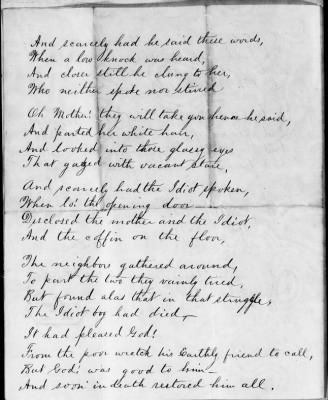 And scarcely had he said these words,
When a low knock was heard,
And closer still he clung to her,
Who neither spoke nor stired
Oh Mother! they will take you hence he said,
And parted her white hair,
And looked into those glassy eyes
That gazed with vacant stare,
And scarcely had the Idiot spoken,
When lo! the opening door
Disclosed the mother and the Idiot,
And the coffin on the floor,
The neighbors gathered around,
To part the two they vainly tried,
But found alas that in that struggle,
The Idiot boy had died,
It had pleased God!
From the poor wretch his Earthly friend to call,
But God! was good to him—
And soon in death restored him all.